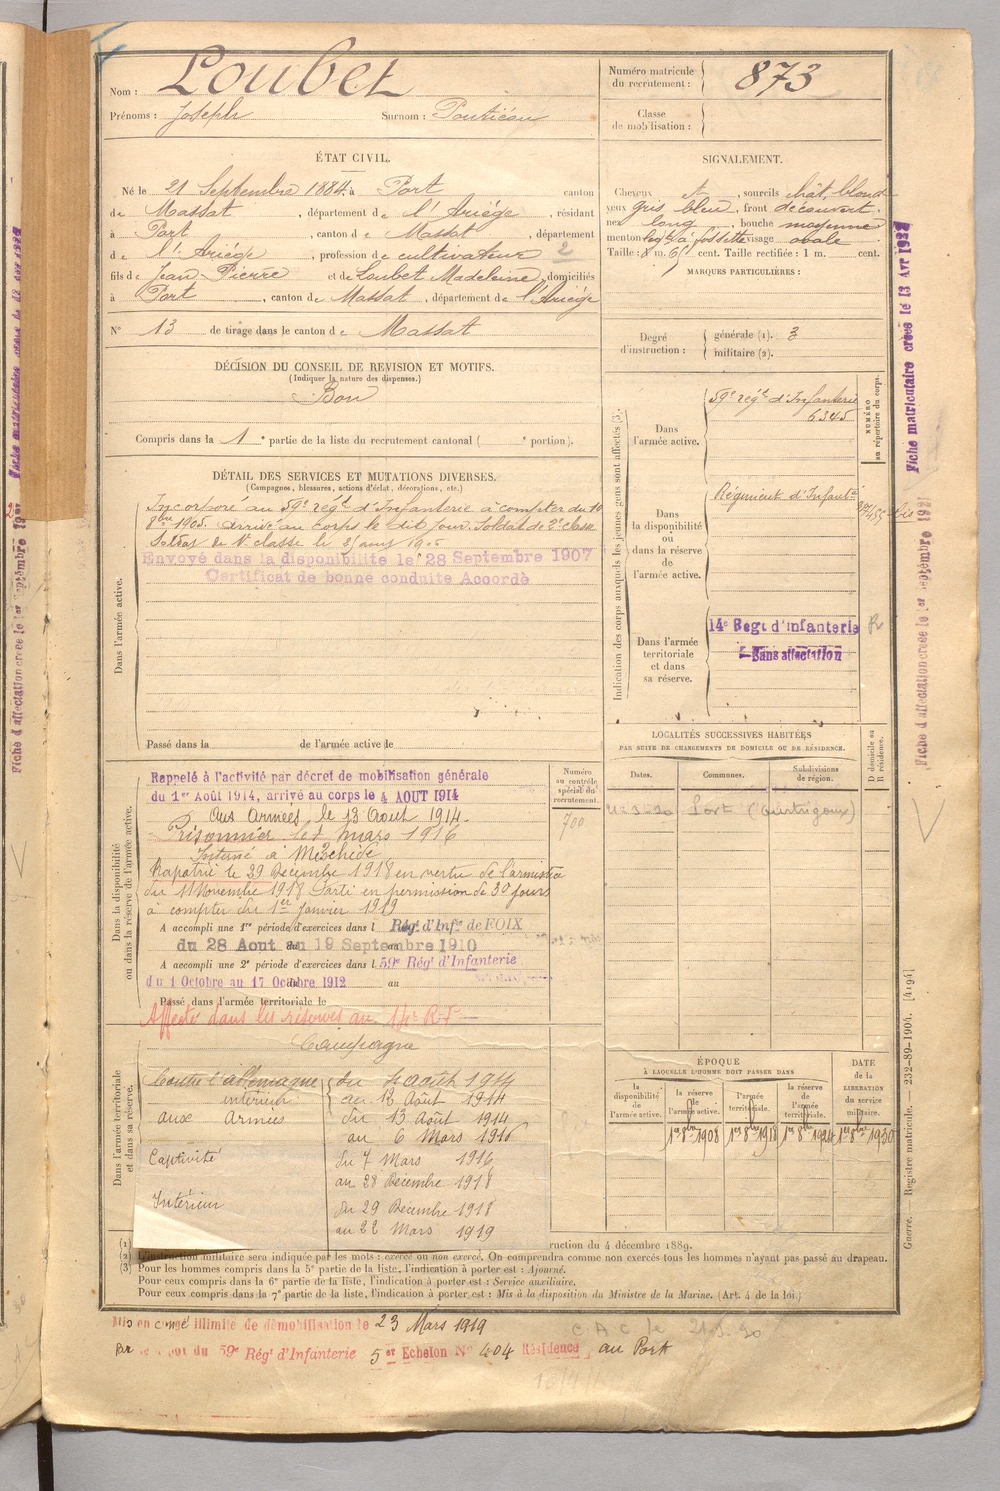 Nom : Loubet
Prénoms : Joseph Surnom :
Numéro matricule du recrutement : 873
Classe de mobilisation :
ÉTAT CIVIL.
Né le 21 Septembre 1884, à Port canton
de Massat, département de l'Ariège, résidant
à Port, canton de Massat, département
de l'Ariège, profession de cultivateur 2
fils de Jean Pierre et de Loubet Madeleine, domiciliés
à Port, canton de Massat, département de l'Ariège
N° 13 de tirage dans le canton de Massat
SIGNALEMENT.
Cheveux et, sourcils chât. blond
yeux gris bleu, front découvert.
nez long, bouche moyenne
menton à fossette visage ovale
Taille : 1 m. 61 cent. Taille rectifiée : 1 m. cent.
MARQUES PARTICULIÈRES :
Degré d'instruction : générale (1). 3
militaire (2).
DÉCISION DU CONSEIL DE REVISION ET MOTIFS.
(Indiquer la nature des dispenses.)
Bon
Compris dans la 1e partie de la liste du recrutement cantonal ( e portion).
DÉTAIL DES SERVICES ET MUTATIONS DIVERSES.
(Campagnes, blessures, actions d'éclat, décorations, etc.)
Dans l'armée active.
Incorporé au 59e régt d'Infanterie à compter du 10
8bre 1905. arrivé au corps le dit jour. Soldat de 2e classe
Soldat de 1e classe le
Envoyé dans la disponibilité le 28 Septembre 1907
Certificat de bonne conduite Accordé
Passé dans la de l'armée active le
Indication des corps auxquels les jeunes gens sont affectés (3).
NUMÉRO au répertoire du corps.
Dans l'armée active.
59e régt d'Infanterie
6345
Dans la disponibilité ou dans la réserve de l'armée active.
Régiment d'Infantie
Dans l'armée territoriale et dans sa réserve.
14e Regt d'infanterie
Sans affectation
LOCALITÉS SUCCESSIVES HABITÉES
PAR SUITE DE CHANGEMENTS DE DOMICILE OU DE RÉSIDENCE.
Dates. Communes. Subdivisions de région. D domicile ou R résidence.
Port
Dans la disponibilité ou dans la réserve de l'armée active.
Numéro au contrôle spécial du recrutement.
700
Rappelé à l'activité par décret de mobilisation générale
du 1er Août 1914, arrivé au corps le 4 AOUT 1914
Aux Armées, le 13 Août 1914.
Prisonnier le 7 mars 1916
Interné à Meschède
Rapatrié le 29 Décembre 1918 en vertu de l'armistice
du 11 Novembre 1918 Parti en permission de 30 jours
à compter du 1er Janvier 1919
A accompli une 1re période d'exercices dans l Rég. d'Infie de FOIX
du 28 Aout au 19 Septembre 1910
A accompli une 2e période d'exercices dans l 59e Régt d'Infanterie
du 1 Octobre au 17 Octobre 1912 au
Passé dans l'armée territoriale le
Affecté dans les réserves au 14e R.I
Dans l'armée territoriale et dans sa réserve.
Campagne
Contre l'allemagne du 4 août 1914
intérieur au 12 Août 1914
aux Armées du 13 Août 1914
au 6 Mars 1916
Captivité du 7 Mars 1916
au 28 Décembre 1918
Intérieur du 29 Décembre 1918
au 22 Mars 1919
ÉPOQUE
À LAQUELLE L'HOMME DOIT PASSER DANS
DATE de la LIBÉRATION du service militaire.
la disponibilité de l'armée active. la réserve de l'armée active. l'armée territoriale. la réserve de l'armée territoriale.
1er 8bre 1908 1er 8bre 1918 1er 8bre 1924 1er 8bre 1930
(1)
ruction du 4 décembre 1889.
(2) L'instruction militaire sera indiquée par les mots : exercé ou non exercé. On comprendra comme non exercés tous les hommes n'ayant pas passé au drapeau.
(3) Pour les hommes compris dans la 5e partie de la liste, l'indication à porter est : Ajourné.
Pour ceux compris dans la 6e partie de la liste, l'indication à porter est : Service auxiliaire.
Pour ceux compris dans la 7e partie de la liste, l'indication à porter est : Mis à la disposition du Ministre de la Marine. (Art. 4 de la loi.)
Mis en congé illimité de démobilisation le 23 Mars 1919
du 59e Régt d'Infanterie 5e Echelon N° 404 Résidence au Port
Guerre. Registre matricule. — 232-89-1904. [4194]
Fiche matriculaire créée le 13 Avr
Fiche d'affectation créée le 1er Septembre 1921